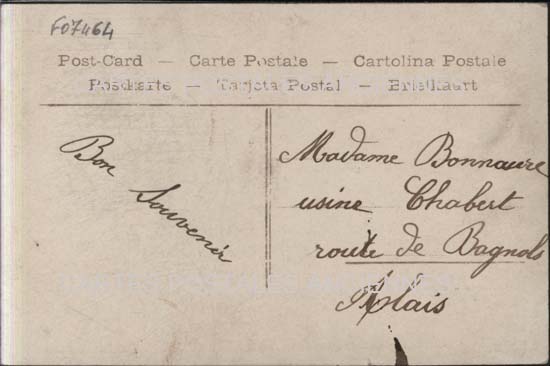 F07464
Post-Card — Carte Postale — Cartolina Postale
Postkarte — Tarjeta Postal — Briefkaart
Bon
Souvenir
Madame Bonnaure
usine Chabert
route de Bagnols
Alais